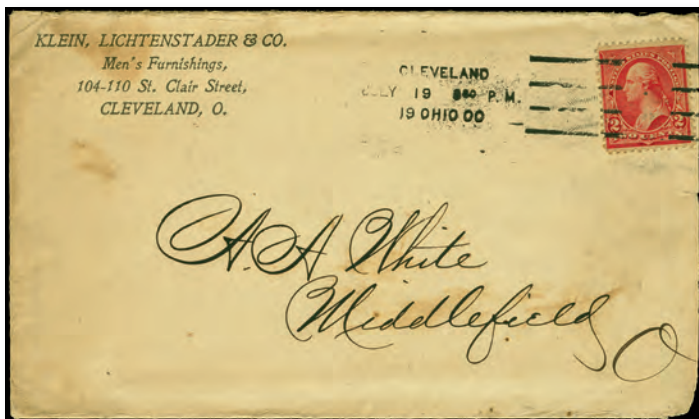 KLEIN, LICHTENSTADER & CO.
Men's Furnishings,
104-110 St. Clair Street,
CLEVELAND, O.
CLEVELAND
JULY 19 P.M.
19 OHIO 00
2 2
A. A White
Middlefield, O